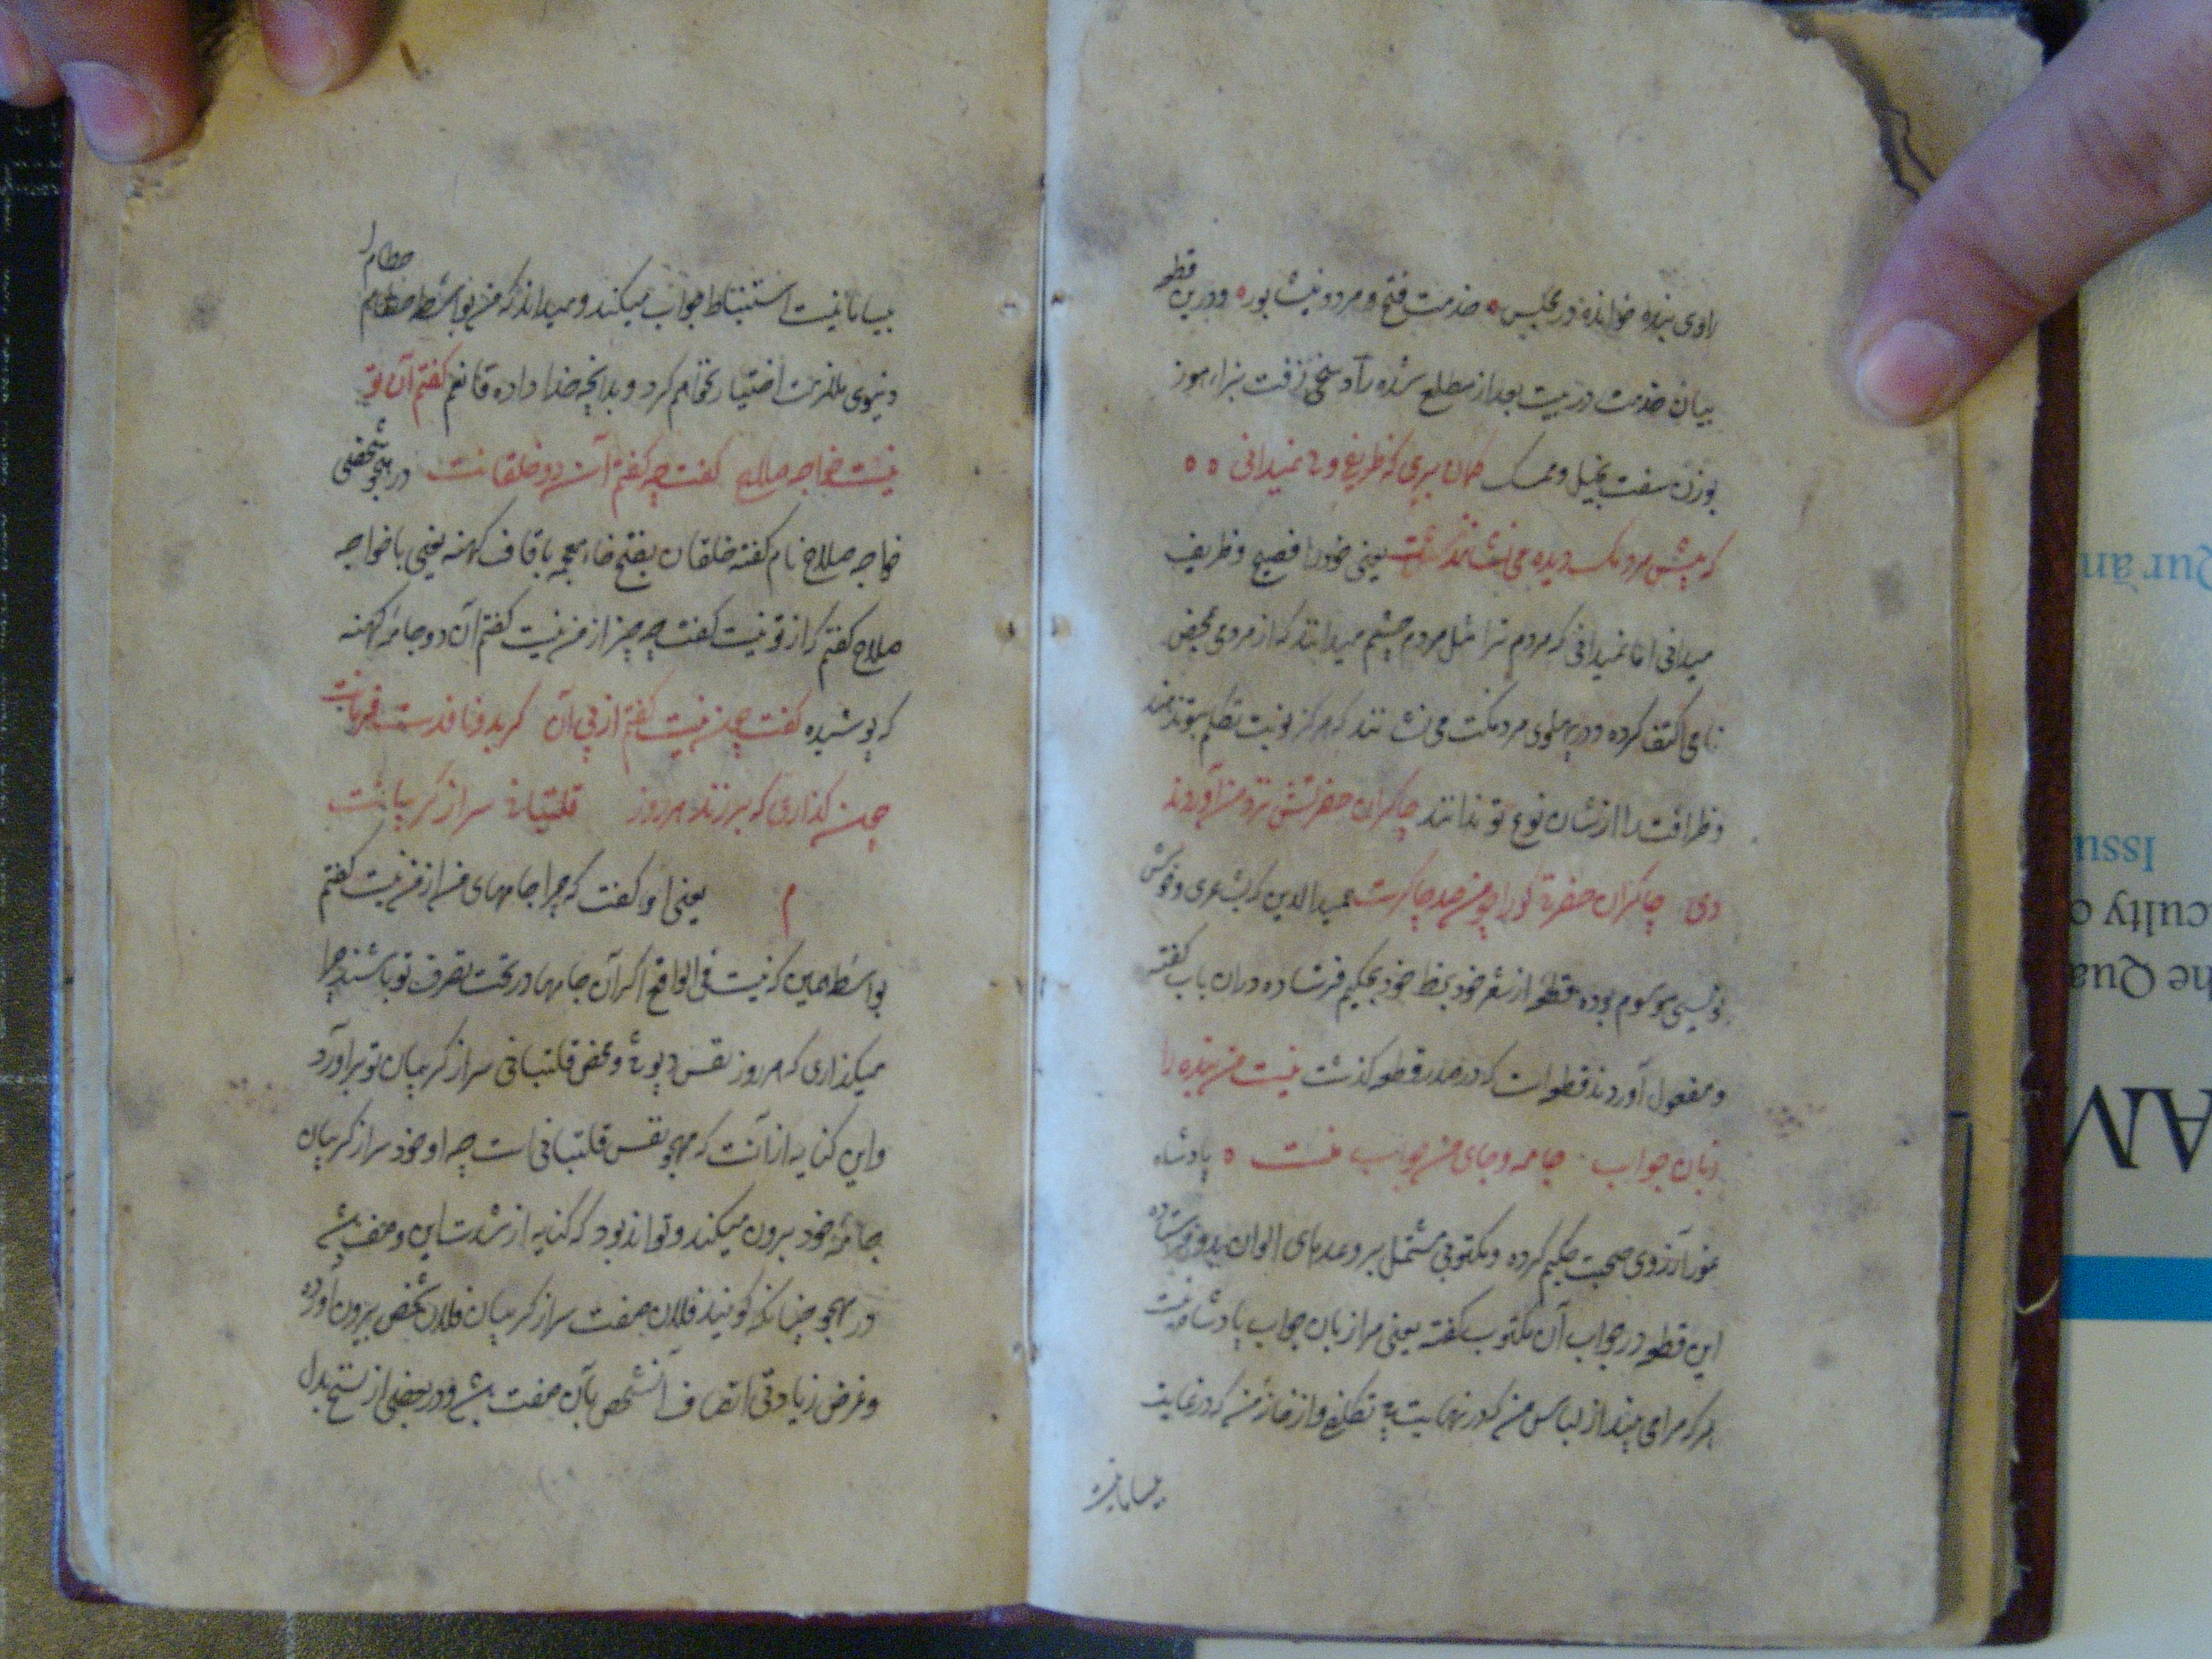 راوی بنده خوانده در مجلس ه خدمت فتح و مرو و نیشابور ه و درین قطعه
بیان خدمت در بیت بعد از مطلع شده رآد سخی زفت بزاء هوز
بوزن سفت بخیل و ممسک گمان بری که ظریفی و نمیدانی ه ه
که پیش مردمک دیده می نشانند یعنی خود را فصیح و ظریف
میدانی اما نمیدانی که مردم ترا مثل مردم چشم میدانند که از مردمی بمحض
نامی اکتفا کرده در پهلوی مردمکت می نشانند که هرگز نوبت تکلم بتو ندهند
و ظرافت را از شان نوع تو ندانند چاکران حضرتش نزد من آوردند
دی چاکران حضرت گو را چو من صد چاکرست حمیدالدین که بشاعری و خوش
نویسی موسوم بوده قطعه از شعر خود بخط خود بحکیم فرستاده در ان باب گفته
و مفعول آوردند قطعه است که در صدر قطعه گذشت نیست من بنده را
زبان جواب جامه و جای من جواب منست ه پادشاه
غور آرزوی صحبت حکیم کرده و مکتوبی مشتمل بر وعدهای الوان بدو فرستاده
این قطعه در جواب آن مکتوب گفته یعنی مرا زبان جواب پادشاه نیست
هر که مرا می بیند از لباس من که در نهایت بی تکلفی و از خانه من که در غایت
بیسامانیست
بیسامانیست استنباط جواب میکند و میداند که من بواسطه حطام
حطام
دنیوی ملازمت اختیار نخواهم کرد و بدانچه خدا داده قانعم گفتم آن تو
نیست خواجه صلاح گفت چه گفتم آن دو خلقانت در هجو شخصی
خواجه صلاح نام گفته خلقان بفتح خاء معجمه با قاف کهنه یعنی با خواجه
صلاح گفتم که از تو نیست گفت چه چیز از من نیست گفتم آن دو جامه کهنه
که پوشیده گفت چون نیست گفتم از پی آن گر بد و نافذست فرمانت
چون گذاری که برزند هر روز قلتبانی سر از گریبانت
م یعنی او گفت که چرا جامهای من از من نیست گفتم
بواسطه همین که نیست فی الواقع اگر آن جامها در تحت تصرف تو باشند چرا
میگذاری که هر روز نفس دیوثی و محض قلتبانی سر از گریبان تو برآورد
و این کنایه از آنست که مهجو نفس قلتبانی است چه او خود سر از گریبان
جامه خود بیرون میکند و تواند بود که کنایه از شدت این وصف باشد
در مهجو چنانکه گویند فلان صفت سر از گریبان فلان شخص بیرون آورده
و غرض زیادتی اتصاف آنشخص بآن صفت باشد و در بعضی از نسخ بدل
Qur'an
Issu
culty o
he Qua
AM